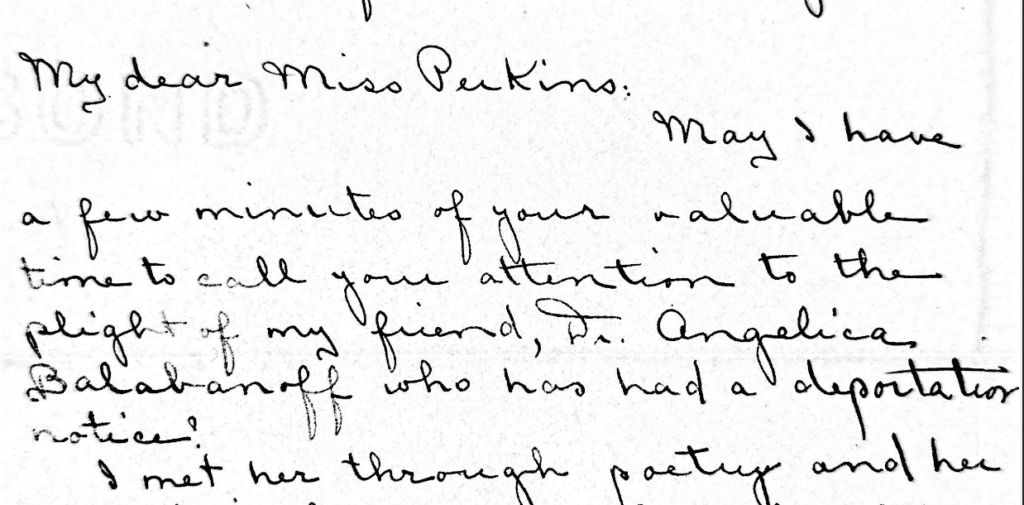 My dear Miss Perkins:
May I have
a few minutes of your valuable
time to call your attention to the
plight of my friend, Dr. Angelica
Balabanoff who has had a deportation
notice?
I met her through poetry and her